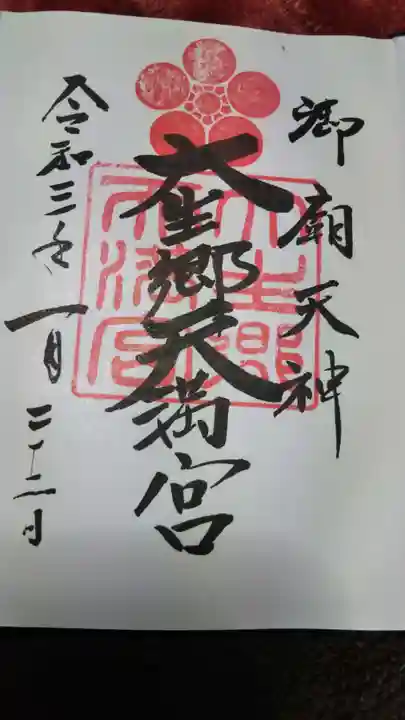 御廟天神
大生郷天満宮
令和三年一月二十二日